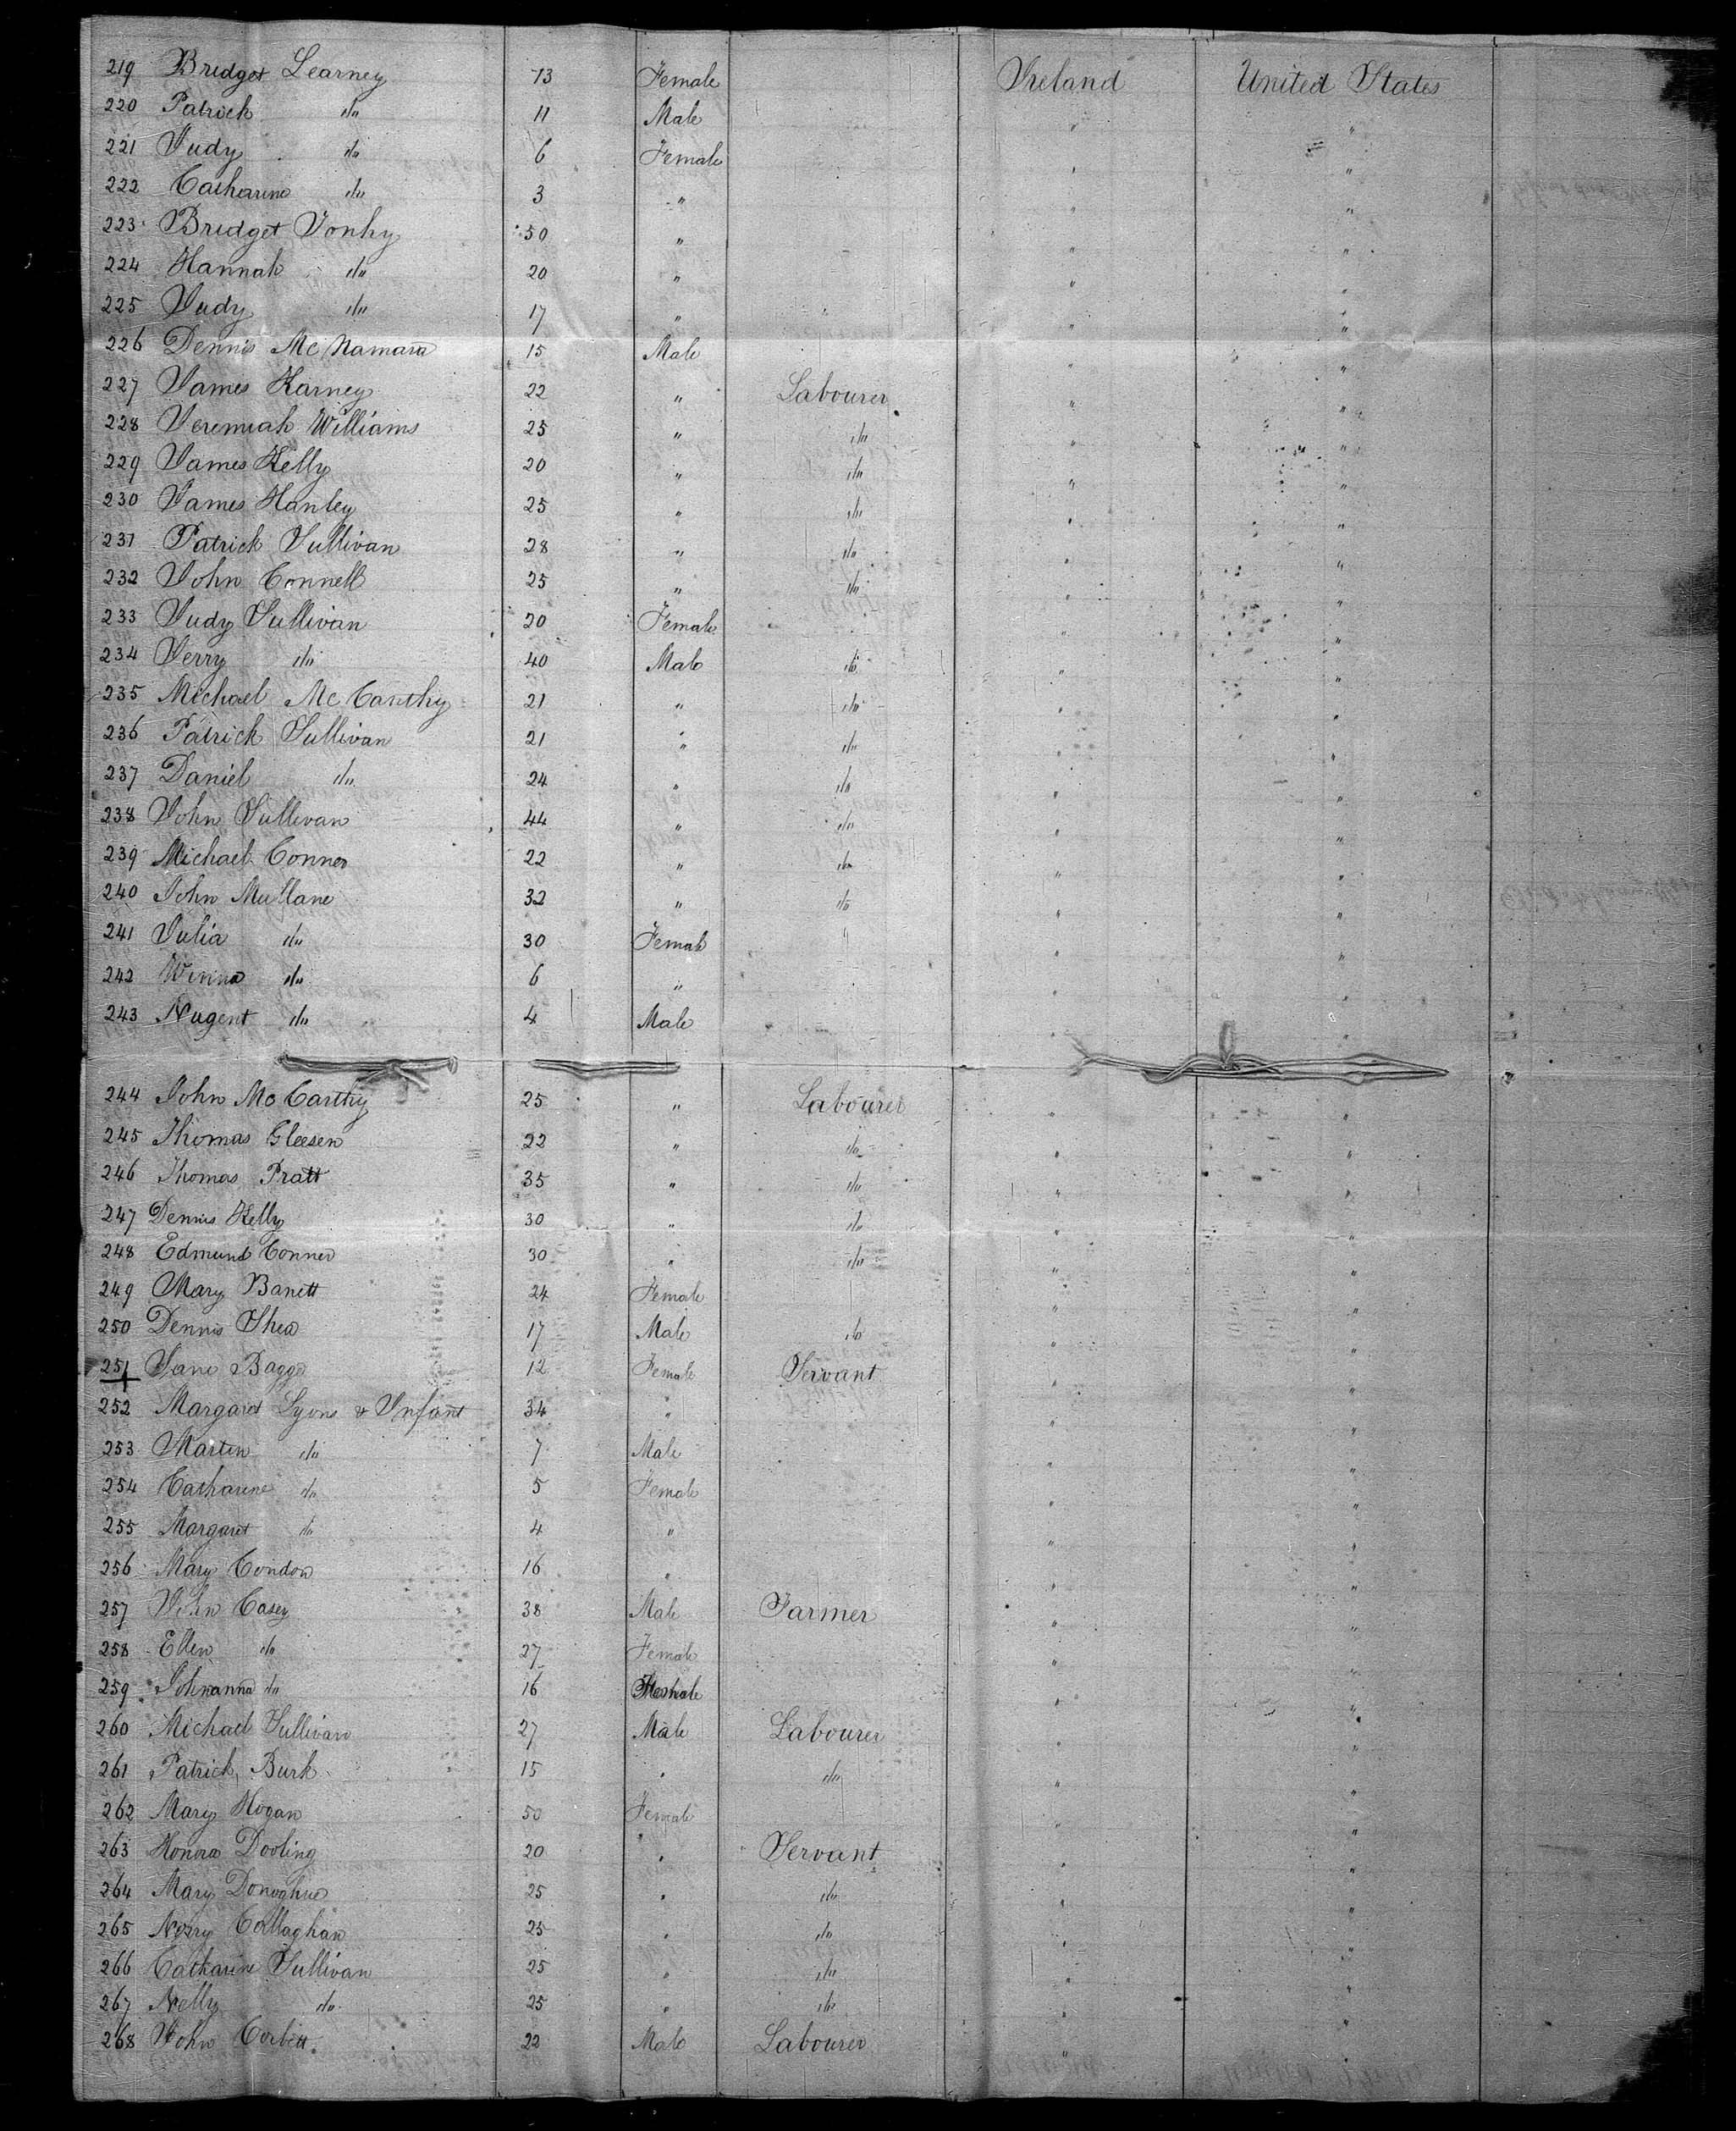 219 Bridget Learney 13 Female Ireland United States
220 Patrick do 11 Male " "
221 Judy do 6 Female " "
222 Catharine do 3 " " "
223 Bridget Tonhy 50 " " "
224 Hannah do 20 " " "
225 Judy do 17 " " "
226 Dennis McNamara 15 Male " "
227 James Karney 22 " Labourer " "
228 Jeremiah Williams 25 " do " "
229 James Kelly 20 " do " "
230 James Hanley 25 " do " "
231 Patrick Sullivan 28 " do " "
232 John Connell 25 " do " "
233 Judy Sullivan 20 Female " "
234 Jerry do 40 Male do " "
235 Michael McCarthy 21 " do " "
236 Patrick Sullivan 21 " do " "
237 Daniel do 24 " do " "
238 John Sullivan 44 " do " "
239 Michael Conner 22 " do " "
240 John Mullane 32 " do " "
241 Julia do 30 Female " "
242 Winna do 6 " " "
243 Nugent do 4 Male " "
244 John McCarthy 25 " Labourer " "
245 Thomas Gleesen 22 " do " "
246 Thomas Pratt 35 " do " "
247 Dennis Kelly 30 " do " "
248 Edmund Conner 30 " do " "
249 Mary Barrett 24 Female " "
250 Dennis Shea 17 Male do " "
251 Jane Bagge 12 Female Servant " "
252 Margaret Lyons & Infant 34 " " "
253 Martin do 7 Male " "
254 Catharine do 5 Female " "
255 Margaret do 4 " " "
256 Mary Condon 16 " " "
257 John Casey 38 Male Farmer " "
258 Ellen do 27 Female " "
259 Johnanna do 16 Female " "
260 Michael Sullivan 27 Male Labourer " "
261 Patrick Burk 15 " do " "
262 Mary Hogan 50 Female " "
263 Honora Dooling 20 " Servant " "
264 Mary Donoghue 25 " do " "
265 Norry Callaghan 25 " do " "
266 Catharine Sullivan 25 " do " "
267 Nelly do 25 " do " "
268 John Corbett 22 Male Labourer " "